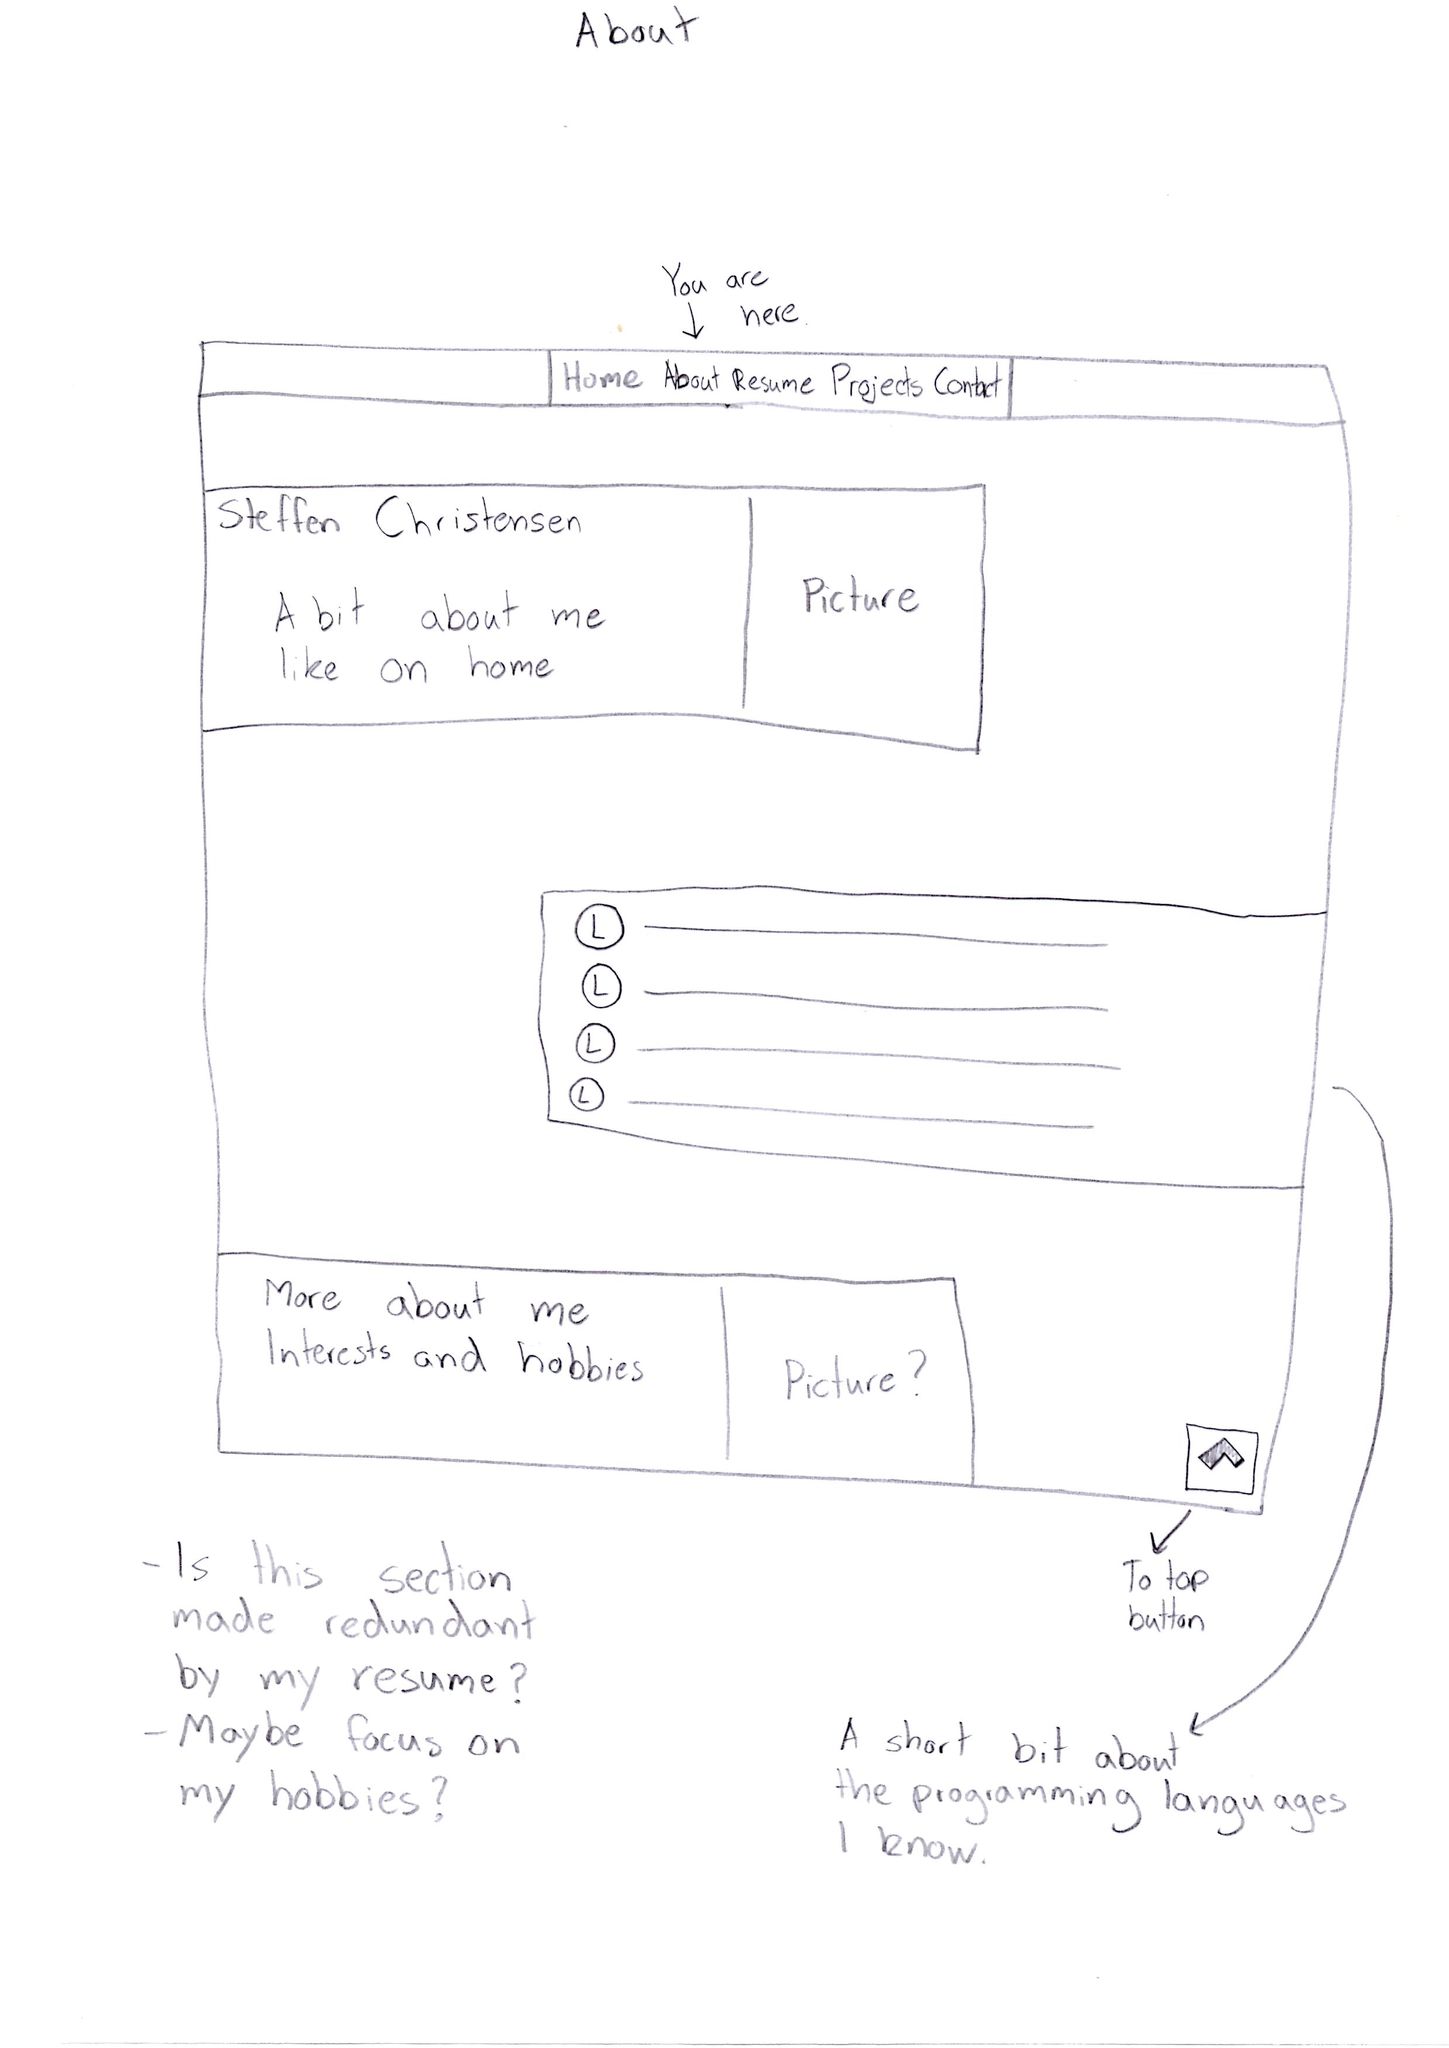 About
You are
here.
Home About Resume Projects Contact
Steffen Christensen
A bit about me
like on home
Picture
L
L
L
L
More about me
Interests and hobbies
Picture?
To top
button
- Is this section
made redundant
by my resume?
- Maybe focus on
my hobbies?
A short bit about
the programming languages
I know.